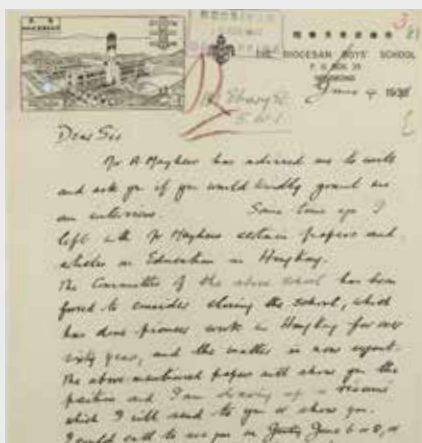 THE DIOCESAN BOYS' SCHOOL
P. O. BOX 33
HONGKONG
June 4 193
S.W.1
Dear Sir
Mr A Mayhew has advised me to write
and ask you if you would kindly grant me
an interview. Some time ago I
left with Mr Mayhew certain papers and
articles on Education in HongKong.
The Committee of the above school has been
forced to consider closing the school, which
has done pioneer work in HongKong for over
sixty years, and the matter is now urgent.
The above mentioned papers will show you the
position and I am drawing up a résumé
which I will send to you or show you.
I could call to see you on June 6 or 8, or